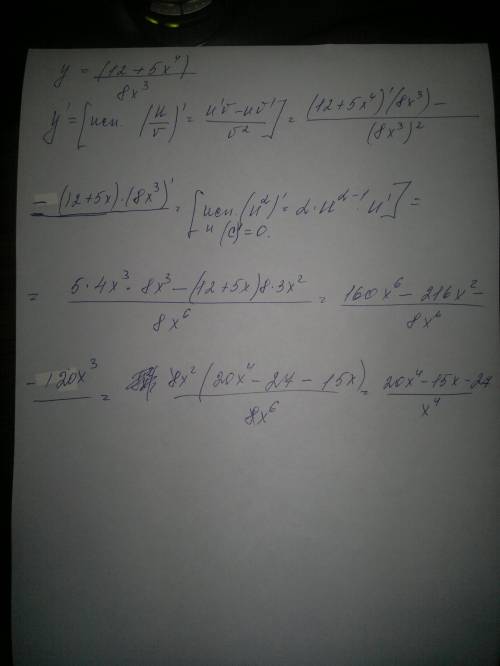 y = (12 + 5x⁴) / 8x³
y' = [исп. (u/v)' = (u'v − uv') / v²] = ((12 + 5x⁴)'(8x³) −) / (8x³)²
− (12 + 5x)·(8x³)' = [исп. (u^α)' = α·u^(α−1)·u'] =
и (C)' = 0.
= (5·4x³·8x³ − (12 + 5x)8·3x²) / 8x⁶ = (160x⁶ − 216x² −) / 8x⁶
− 120x³ = 8x²(20x⁴ − 27 − 15x) / 8x⁶ = (20x⁴ − 15x − 27) / x⁴